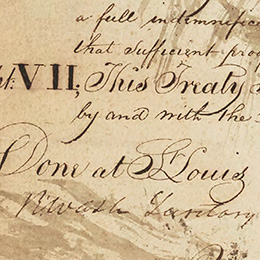 a full indemnific
that sufficient pro
t: VII; This Treaty
by and with the
Done at St Louis
Territory